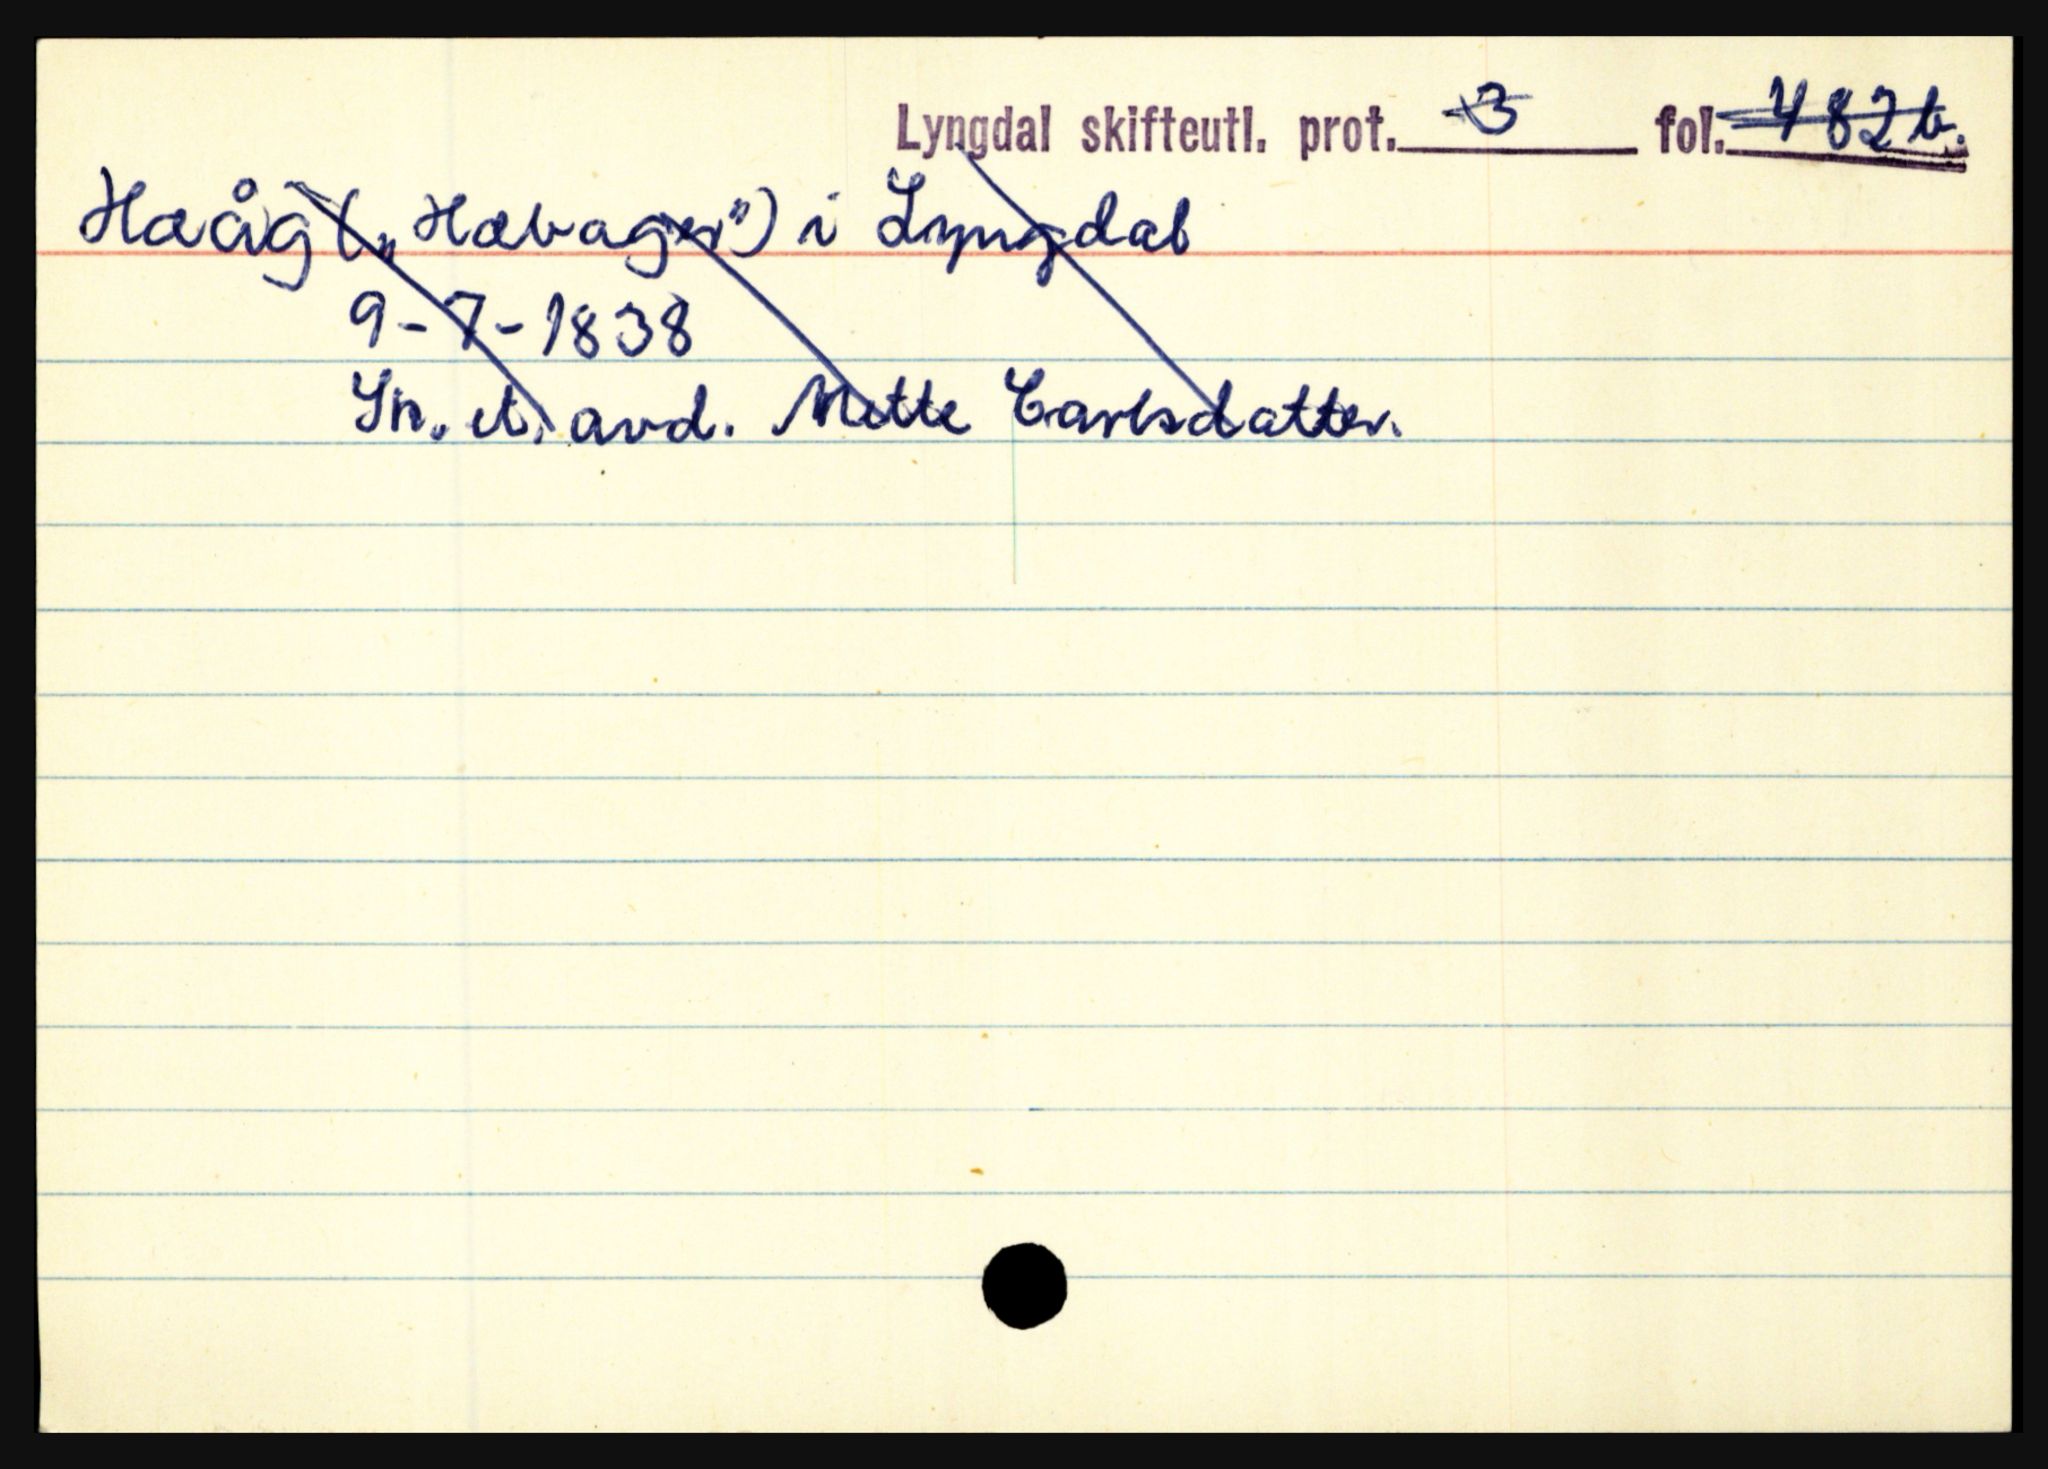 Lyngdal skifteutl. prot. 3 fol. 482b.
Hæåg („Hæbager") i Lyngdal
9-7-1838
Sk. et. avd. Mette Carlsdatter.